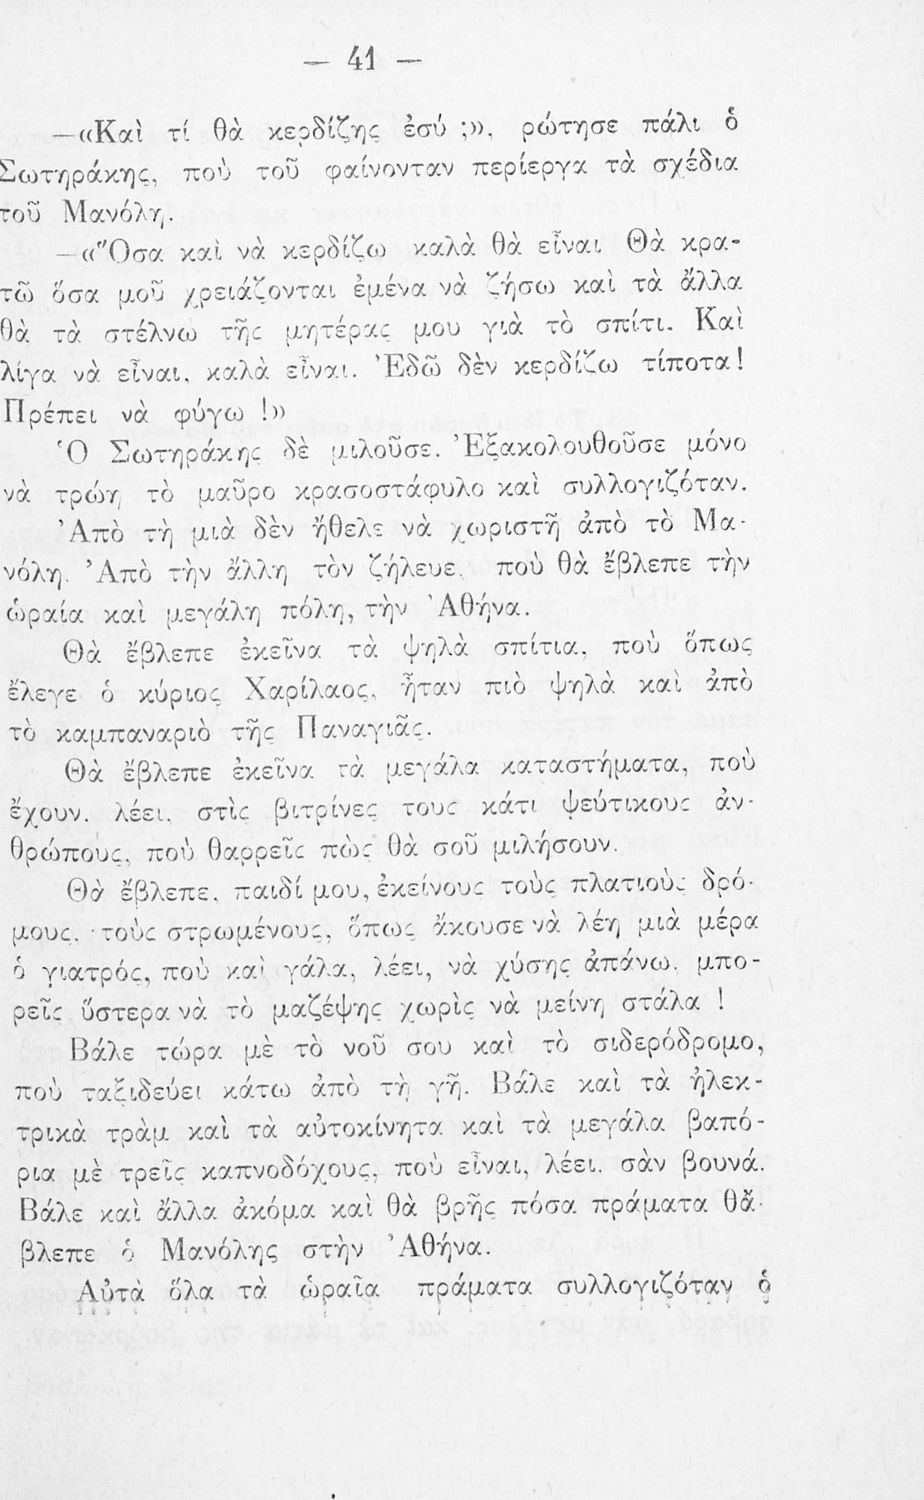 — 41 —
—«Καὶ τί θὰ κερδίζῃς ἐσύ ;», ρώτησε πάλι ὁ
Σωτηράκης, ποὺ τοῦ φαίνονταν περίεργα τὰ σχέδια
τοῦ Μανόλη.
—«Ὅσα καὶ νὰ κερδίζω καλὰ θὰ εἶναι Θὰ κρα-
τῶ ὅσα μοῦ χρειάζονται ἐμένα νὰ ζήσω καὶ τὰ ἄλλα
θὰ τὰ στέλνω τῆς μητέρας μου γιὰ τὸ σπίτι. Καὶ
λίγα νὰ εἶναι, καλὰ εἶναι. Ἐδῶ δὲν κερδίζω τίποτα!
Πρέπει νὰ φύγω !»
Ὁ Σωτηράκης δὲ μιλοῦσε. Ἐξακολουθοῦσε μόνο
νὰ τρώῃ τὸ μαῦρο κρασοστάφυλο καὶ συλλογιζόταν.
Ἀπὸ τὴ μιὰ δὲν ἤθελε νὰ χωριστῆ ἀπὸ τὸ Μα-
νόλη. Ἀπὸ τὴν ἄλλη τὸν ζήλευε, ποὺ θὰ ἔβλεπε τὴν
ὡραία καὶ μεγάλη πόλη, τὴν Ἀθήνα.
Θὰ ἔβλεπε ἐκεῖνα τὰ ψηλὰ σπίτια, ποὺ ὅπως
ἔλεγε ὁ κύριος Χαρίλαος, ἦταν πιὸ ψηλὰ καὶ ἀπὸ
τὸ καμπαναριὸ τῆς Παναγιᾶς.
Θὰ ἔβλεπε ἐκεῖνα τὰ μεγάλα καταστήματα, ποὺ
ἔχουν, λέει, στὶς βιτρίνες τους κάτι ψεύτικους ἀν-
θρώπους, ποὺ θαρρεῖς πὼς θὰ σοῦ μιλήσουν.
Θὰ ἔβλεπε, παιδί μου, ἐκείνους τοὺς πλατιοὺς δρό-
μους, τοὺς στρωμένους, ὅπως ἄκουσε νὰ λέη μιὰ μέρα
ὁ γιατρός, ποὺ καὶ γάλα, λέει, νὰ χύσῃς ἀπάνω, μπο-
ρεῖς ὕστερα νὰ τὸ μαζέψῃς χωρὶς νὰ μείνῃ στάλα !
Βάλε τώρα μὲ τὸ νοῦ σου καὶ τὸ σιδερόδρομο,
ποὺ ταξιδεύει κάτω ἀπὸ τὴ γῆ. Βάλε καὶ τὰ ἠλεκ-
τρικὰ τρὰμ καὶ τὰ αὐτοκίνητα καὶ τὰ μεγάλα βαπό-
ρια μὲ τρεῖς καπνοδόχους, ποὺ εἶναι, λέει, σὰν βουνά.
Βάλε καὶ ἄλλα ἀκόμα καὶ θὰ βρῆς πόσα πράματα θἄ-
βλεπε ὁ Μανόλης στὴν Ἀθήνα.
Αὐτὰ ὅλα τὰ ὡραῖα πράματα συλλογιζόταν ὁ